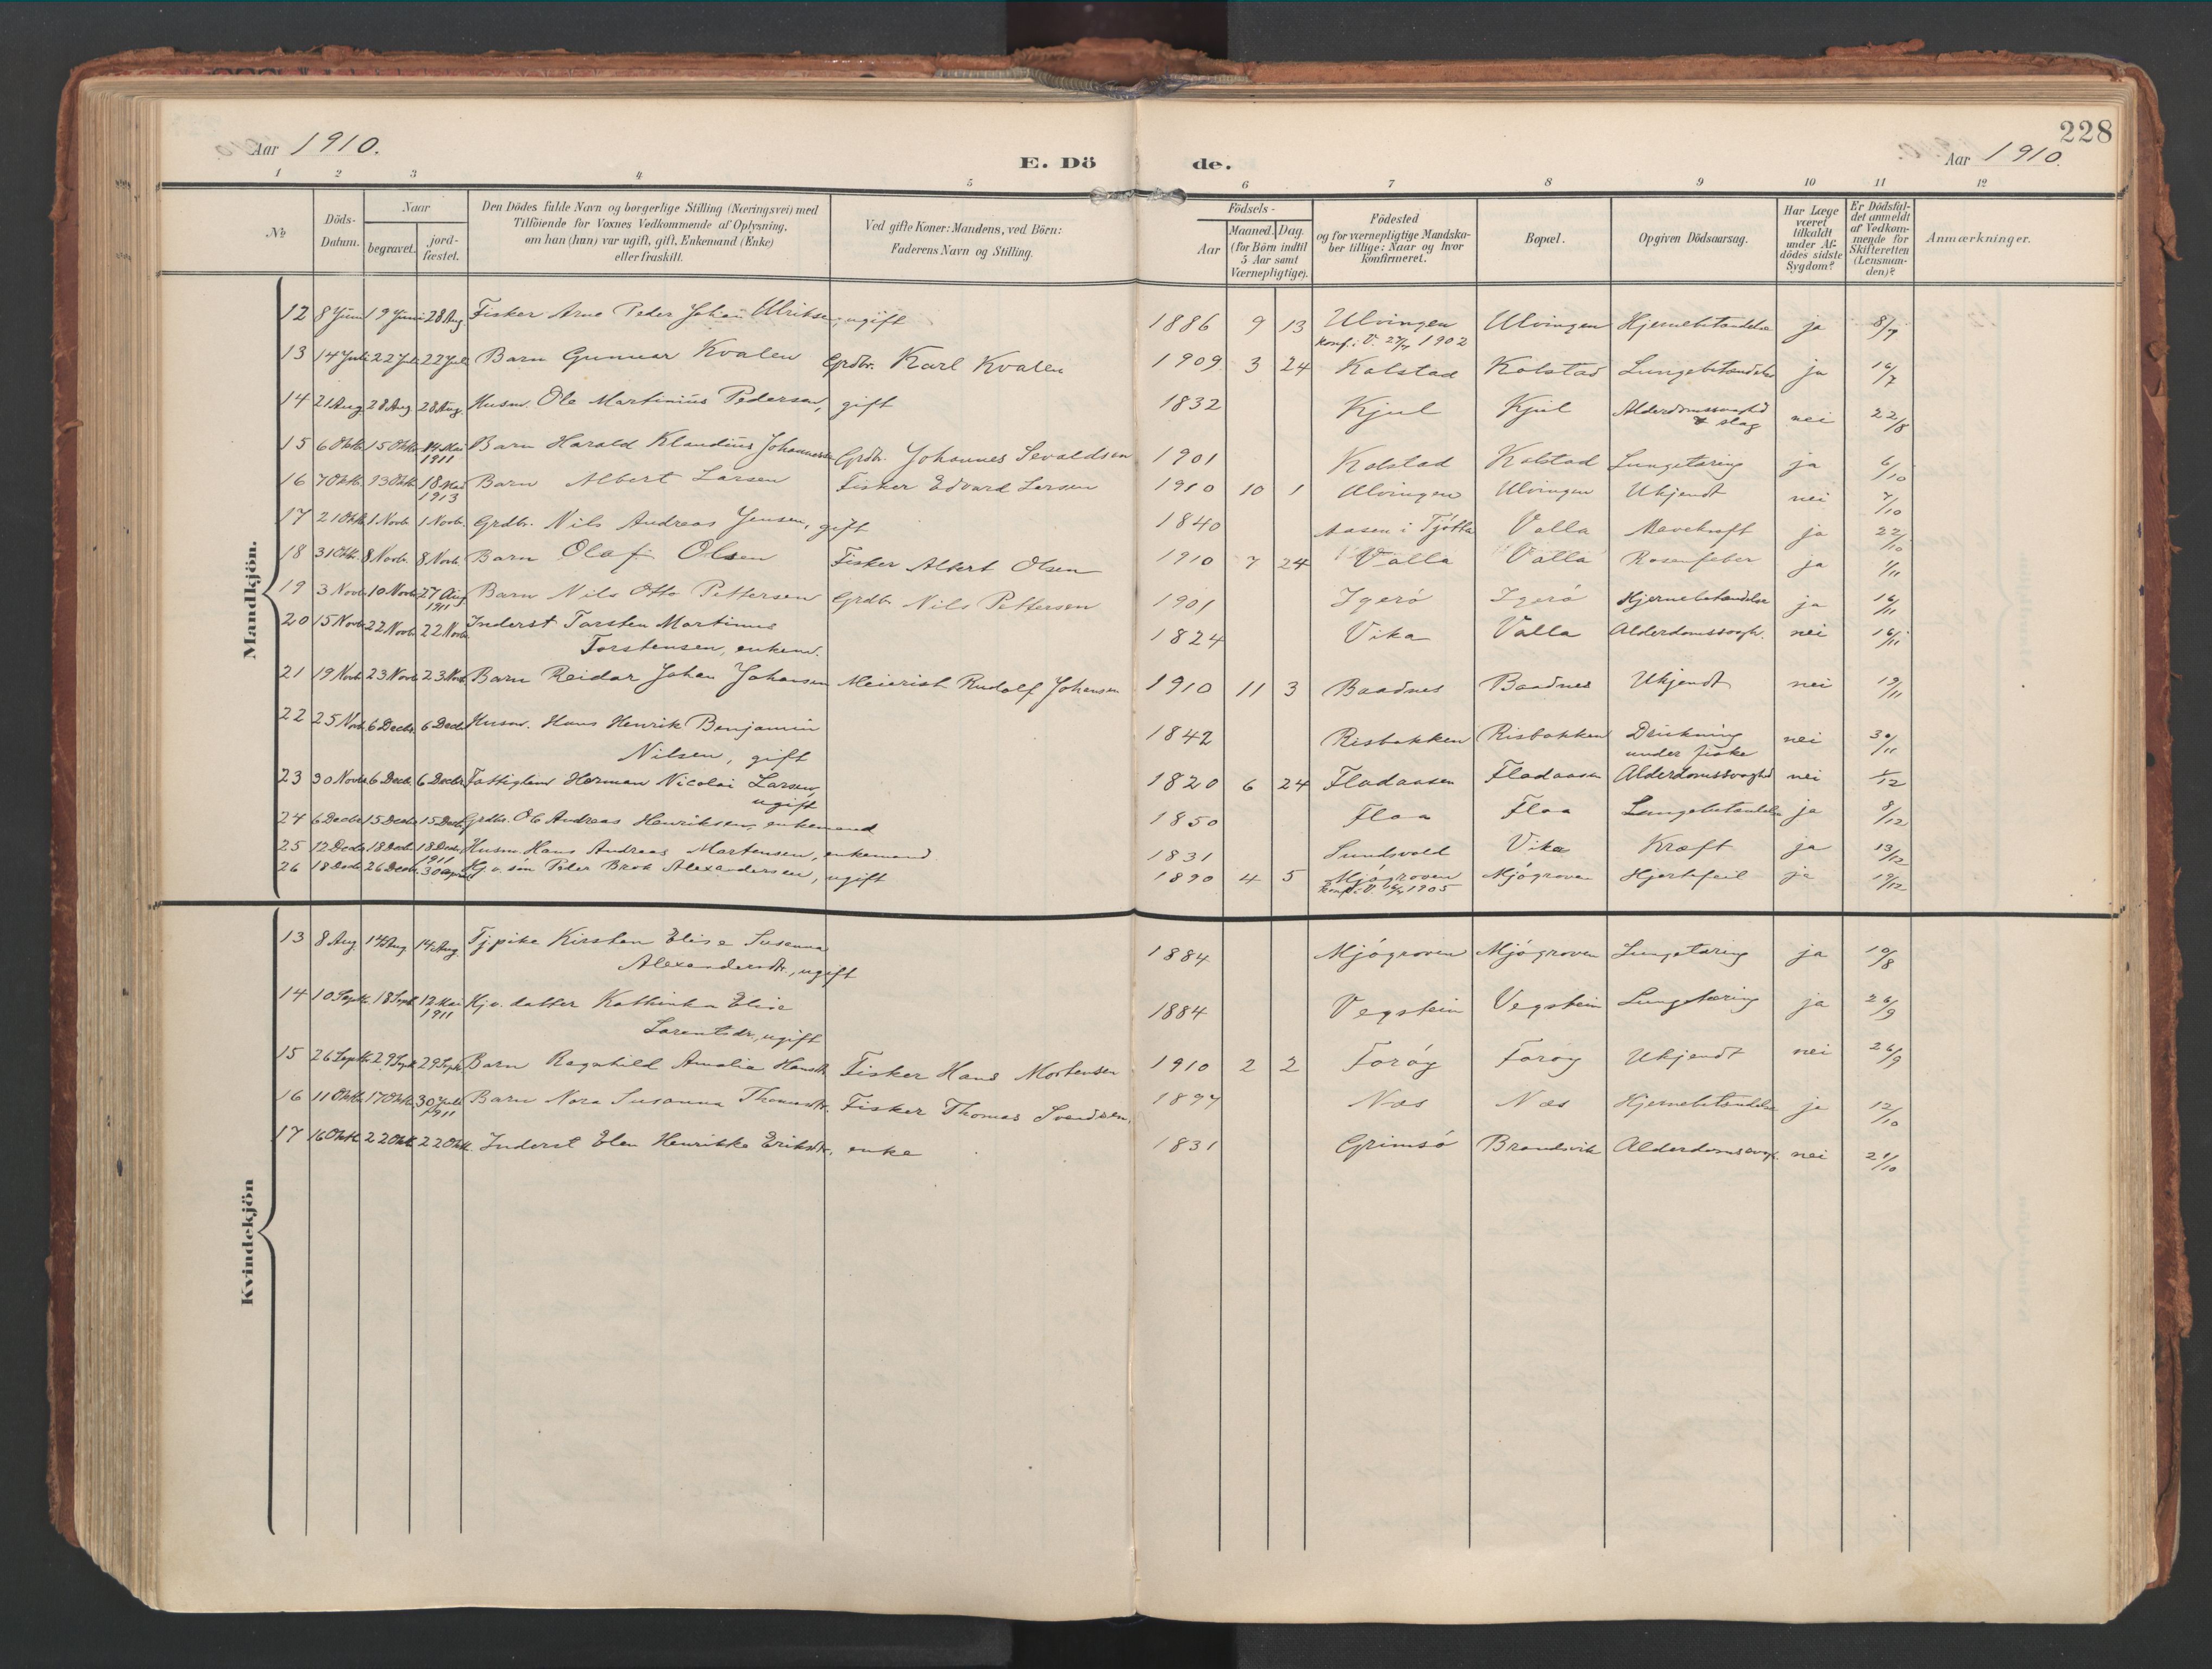 228
Aar 1910.
E. Dö de.
Aar 1910.
1 2 3 4 5 6 7 8 9 10 11 12
№
Döds-Datum.
Naar
begravet.
jord-fæstet.
Den Dödes fulde Navn og borgerlige Stilling (Næringsvei) med
Tilföiende for Voxnes Vedkommende af Oplysning,
om han (hun) var ugift, gift, Enkemand (Enke)
eller fraskilt.
Ved gifte Koner: Mandens, ved Börn:
Faderens Navn og Stilling.
Födsels-
Aar
Maaned. Dag.
(for Börn indtil
5 Aar samt
Værnepligtige).
Födested
og for værnepligtige Mandska-
ber tillige: Naar og hvor
konfirmeret.
Bopæl.
Opgiven Dödsaarsag.
Har Læge
været
tilkaldt
under Af-
dödes sidste
Sygdom?
Er Dödsfal-
det anmeldt
af Vedkom-
mende for
Skifteretten
(Lensman-
den)?
Anmærkninger.
Mandkjön.
12 8 Juni 19 Juni 28 Aug. Fisker Arne Peder Johan Ulriksen, ugift 1886 9 13 Ulvingen Ulvingen Hjernebetændelse ja 8/7
konf. i V. 27/7 1902
13 14 Juli 22 Juli 22 Juli Barn Gunnar Kvalen Grdbr. Karl Kvalen 1909 3 24 Kolstad Kolstad Lungebetændelse ja 16/7
14 21 Aug 28 Aug 28 Aug. Husm. Ole Martinius Pedersen, gift 1832 Kjul Kjul Alderdomssvaghd nei 22/8
& slag
15 6 Oktb. 15 Oktb. 14 Mai 1911 Barn Harald Klaudius Johannesen Grdbr. Johannes Sevaldsen 1901 Kolstad Kolstad Lungetæring ja 6/10
16 7 Oktb. 23 Oktb. 18 Mai 1913 Barn Albert Larsen Fisker Edvard Larsen 1910 10 1 Ulvingen Ulvingen Ukjendt nei 7/10
17 21 Oktb. 1 Novb. 1 Novb. Grdbr. Nils Andreas Jensen, gift 1840 Aasen i Tjötta Valla Mavekræft ja 22/10
18 31 Oktb. 8 Novb. 8 Novb. Barn Olaf Olsen Fisker Albert Olsen 1910 7 24 Valla Valla Rosenfeber ja 1/11
19 3 Novb. 10 Novb. 27 Aug 1911 Barn Nils Otto Pettersen Grdbr. Nils Pettersen 1901 Igerö Igerö Hjernebetændelse ja 16/11
20 15 Novb. 22 Novb. 22 Novb. Inderst Torsten Martinus 1824 Vika Valla Alderdomssvagh. nei 16/11
Torstensen, enkem.
21 19 Novb. 23 Novb. 23 Novb. Barn Reidar Johan Johansen Meierist Rudolf Johansen 1910 11 3 Baadnes Baadnes Ukjendt nei 19/11
22 25 Novb. 6 Decbr. 6 Decbr. Husm. Hans Henrik Benjamin 1842 Risbakken Risbakken Drukning nei 30/11
Nilsen, gift under fiske
23 30 Novbr. 6 Decb. 6 Decbr. Fattiglem Herman Nicolai Larsen, 1820 6 24 Fladaasen Fladaasen Alderdomssvaghd nei 1/12
ugift
24 6 Decbr. 15 Decbr. 15 Decb. Grdbr. Ole Andreas Henriksen, enkemand 1850 Floa Floa Lungebetændelse ja 8/12
25 12 Decb. 18 Decb. 18 Decb. Husm. Hans Andreas Mortensen, enkemand 1831 Sundsvold Vika Kræft ja 13/12
26 18 Decb. 26 Decb. 1911 30 april Kj. v. sön Peder Brok Alexandersen, ugift 1890 4 5 Mjögroven Mjögroven Hjertefeil ja 19/12
konf. i V. 1905
Kvindekjön
13 8 Aug 14 Aug 14 Aug. Tj. pike Kirsten Elise Susanna 1884 Mjögroven Mjögroven Lungetæring ja 10/8
Alexandersdtr., ugift
14 10 Septb. 18 Septb. 12 Mai 1911 Kj. v. datter Kathinka Elise 1884 Vegstein Vegstein Lungetæring ja 26/9
Larentsdr., ugift
15 26 Septbr. 29 Septb. 29 Septb. Barn Ragnhild Amalia Hansdtr. Fisker Hans Mortensen 1910 2 2 Foröy Foröy Ukjendt nei 26/9
16 11 Oktb. 17 Oktb. 30 Juli 1911 Barn Nora Susanna Thomasdtr. Fisker Thomas Svendsen. 1897 Næs Næs Hjernebetændelse ja 12/10
17 16 Oktb. 22 Oktb. 22 Oktb. Inderst Elen Henrikke Eriksdtr., enke 1831 Grimsö Brandsvik Alderdomssvagh. nei 21/10